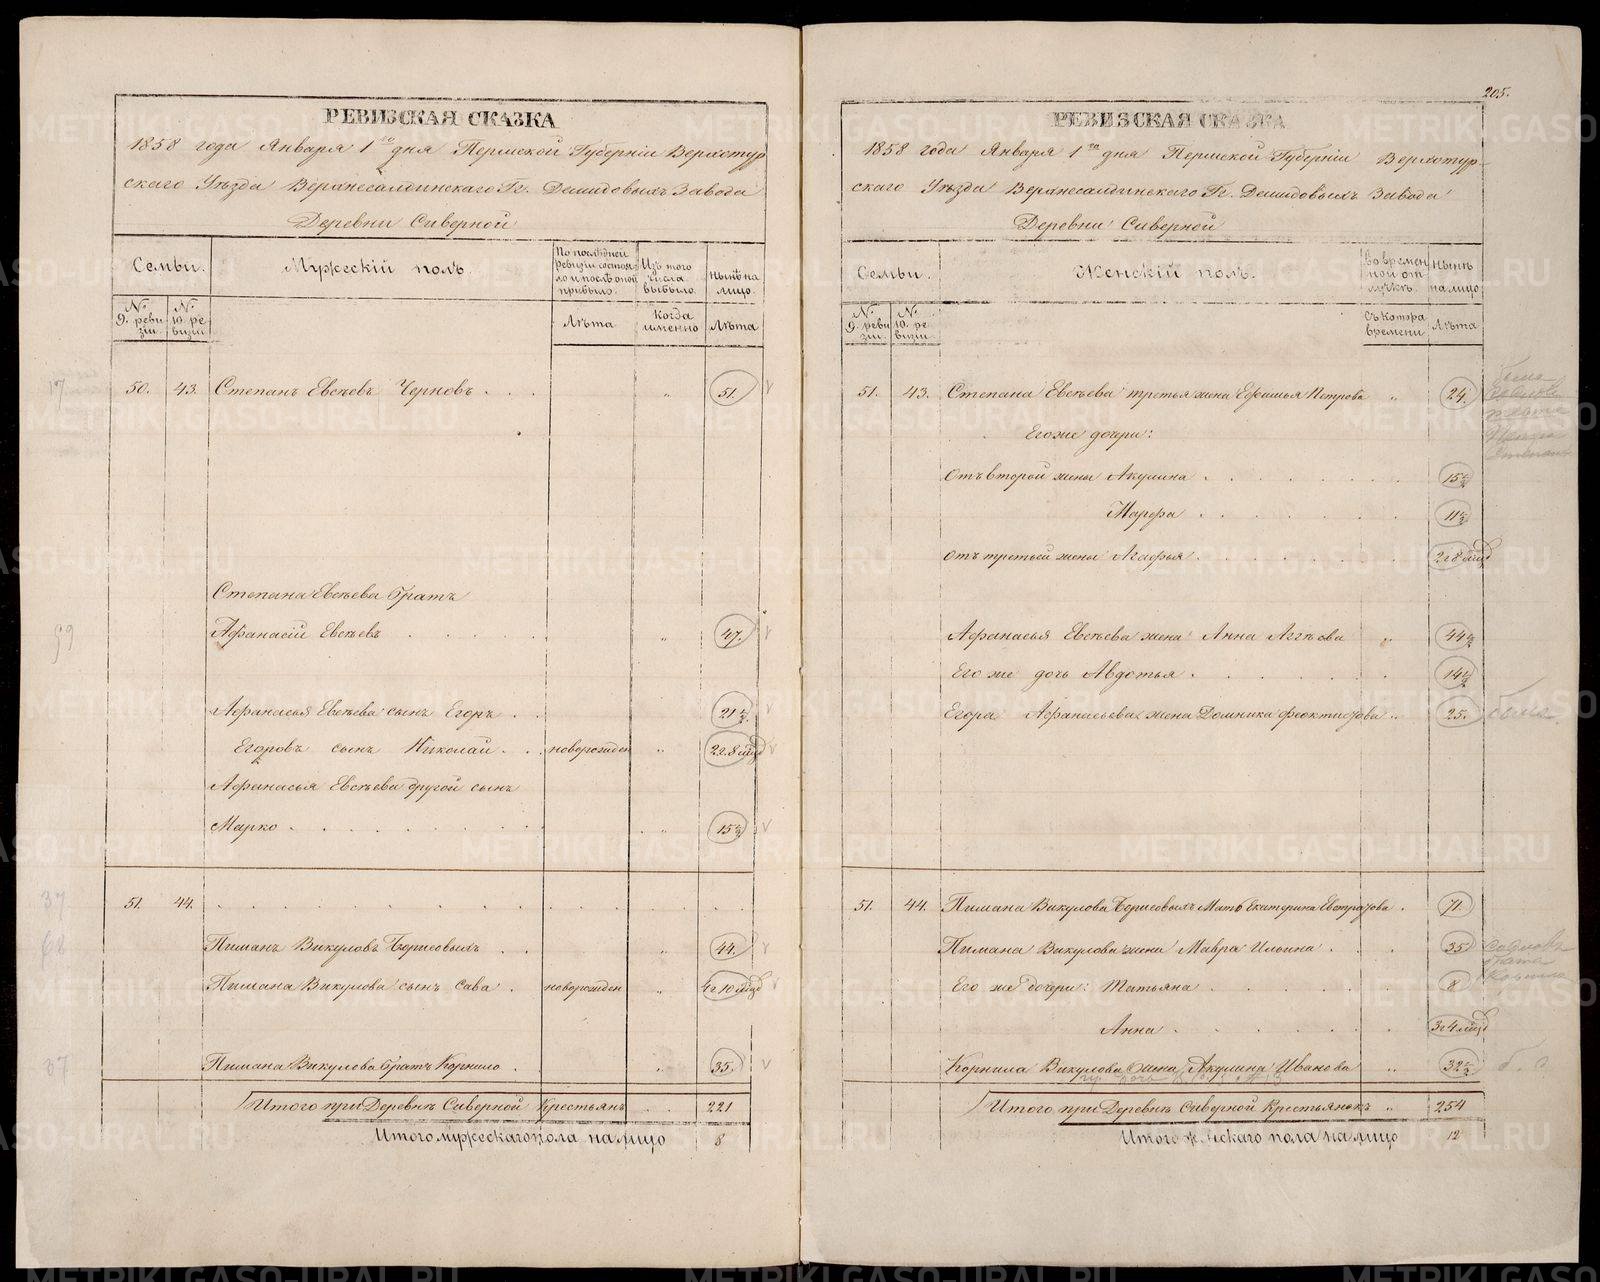 РЕВИЗСКАЯ СКАЗКА
1858 года Января 1го дня Пермской Губернiи Верхотур
скаго Уѣзда Верхнесалдинскаго Гг. Демидовыхъ Завода
Деревни Сиверной
Семьи.
Мужескiй полъ.
По послѣдней
ревизiи состоя-
ло и послѣ оной
прибыло.
Изъ того
числа
выбыло.
нынѣ на
лицо.
№ 9. реви
зiи.
№ 10. ре-
визiи
Лѣта.
Когда
именно
Лѣта
50. 43. Степанъ Евсѣевъ Черновъ . . . „ 51.
Степана Евсѣева братъ
Афанасiй Евсѣевъ . . . . . „ 47.
Афанасья Евсѣева сынъ Егоръ . . „ 21½
Егоровъ сынъ Николай . . новорожден „ 2г. 8 мѣд
Афанасья Евсѣева другой сынъ
Марко . . . . . . . „ 15½
51. 44. . . . . . . . .
Пиманъ Викуловъ Борисовыхъ . . „ 44.
Пимана Викулова сынъ Сава . новорожден „ 4г 10 мѣд
Пимана Викулова братъ Корнило . „ 35.
Итого при Деревнѣ Сиверной Крестьянъ . . 221
Итого мужескаго пола на лицо 8
205.
РЕВИЗСКАЯ СКАЗКА
1858 года Января 1го дня Пермской Губернiи Верхотур-
скаго Уѣзда Верхнесалдинскаго Гг. Демидовыхъ Завода
Деревни Сиверной
Семьи.
Женскiй полъ.
Во времен
ной от
лучкѣ.
нынѣ
на лицо
№ 9. реви
зiи.
№ 10. ре-
визiи
Съ котора
времени
Лѣта
51. 43. Степана Евсѣева третья жена Ефимья Петрова „ 24.
Его же дочри:
Отъ второй жены Акулина . . . . . . 15½
Марфа . . . . . . 11½
отъ третьей жены Агафья . . . . . . 2г 8 мѣд
Афанасья Евсѣева жена Анна Аггѣева „ 44½
Его же дочь Авдотья . . . . . . 14½
Егора Афанасьева жена Домника Феоктистова „ 25.
была
51. 44. Пимана Викулова Борисовыхъ Мать Екатерина Евстратова . 71.
Пимана Викулова жена Мавра Ильина . . . 35
Его же дочри: Татьяна . . . . . . 8
Анна . . . . . . 3г 4 мѣд
Корнила Викулова жена Акулина Иванова „ 32½
Итого при Деревнѣ Сиверной Крестьянокъ „ 254
Итого женскаго пола на лицо 12
METRIKI.GASO-URAL.RU